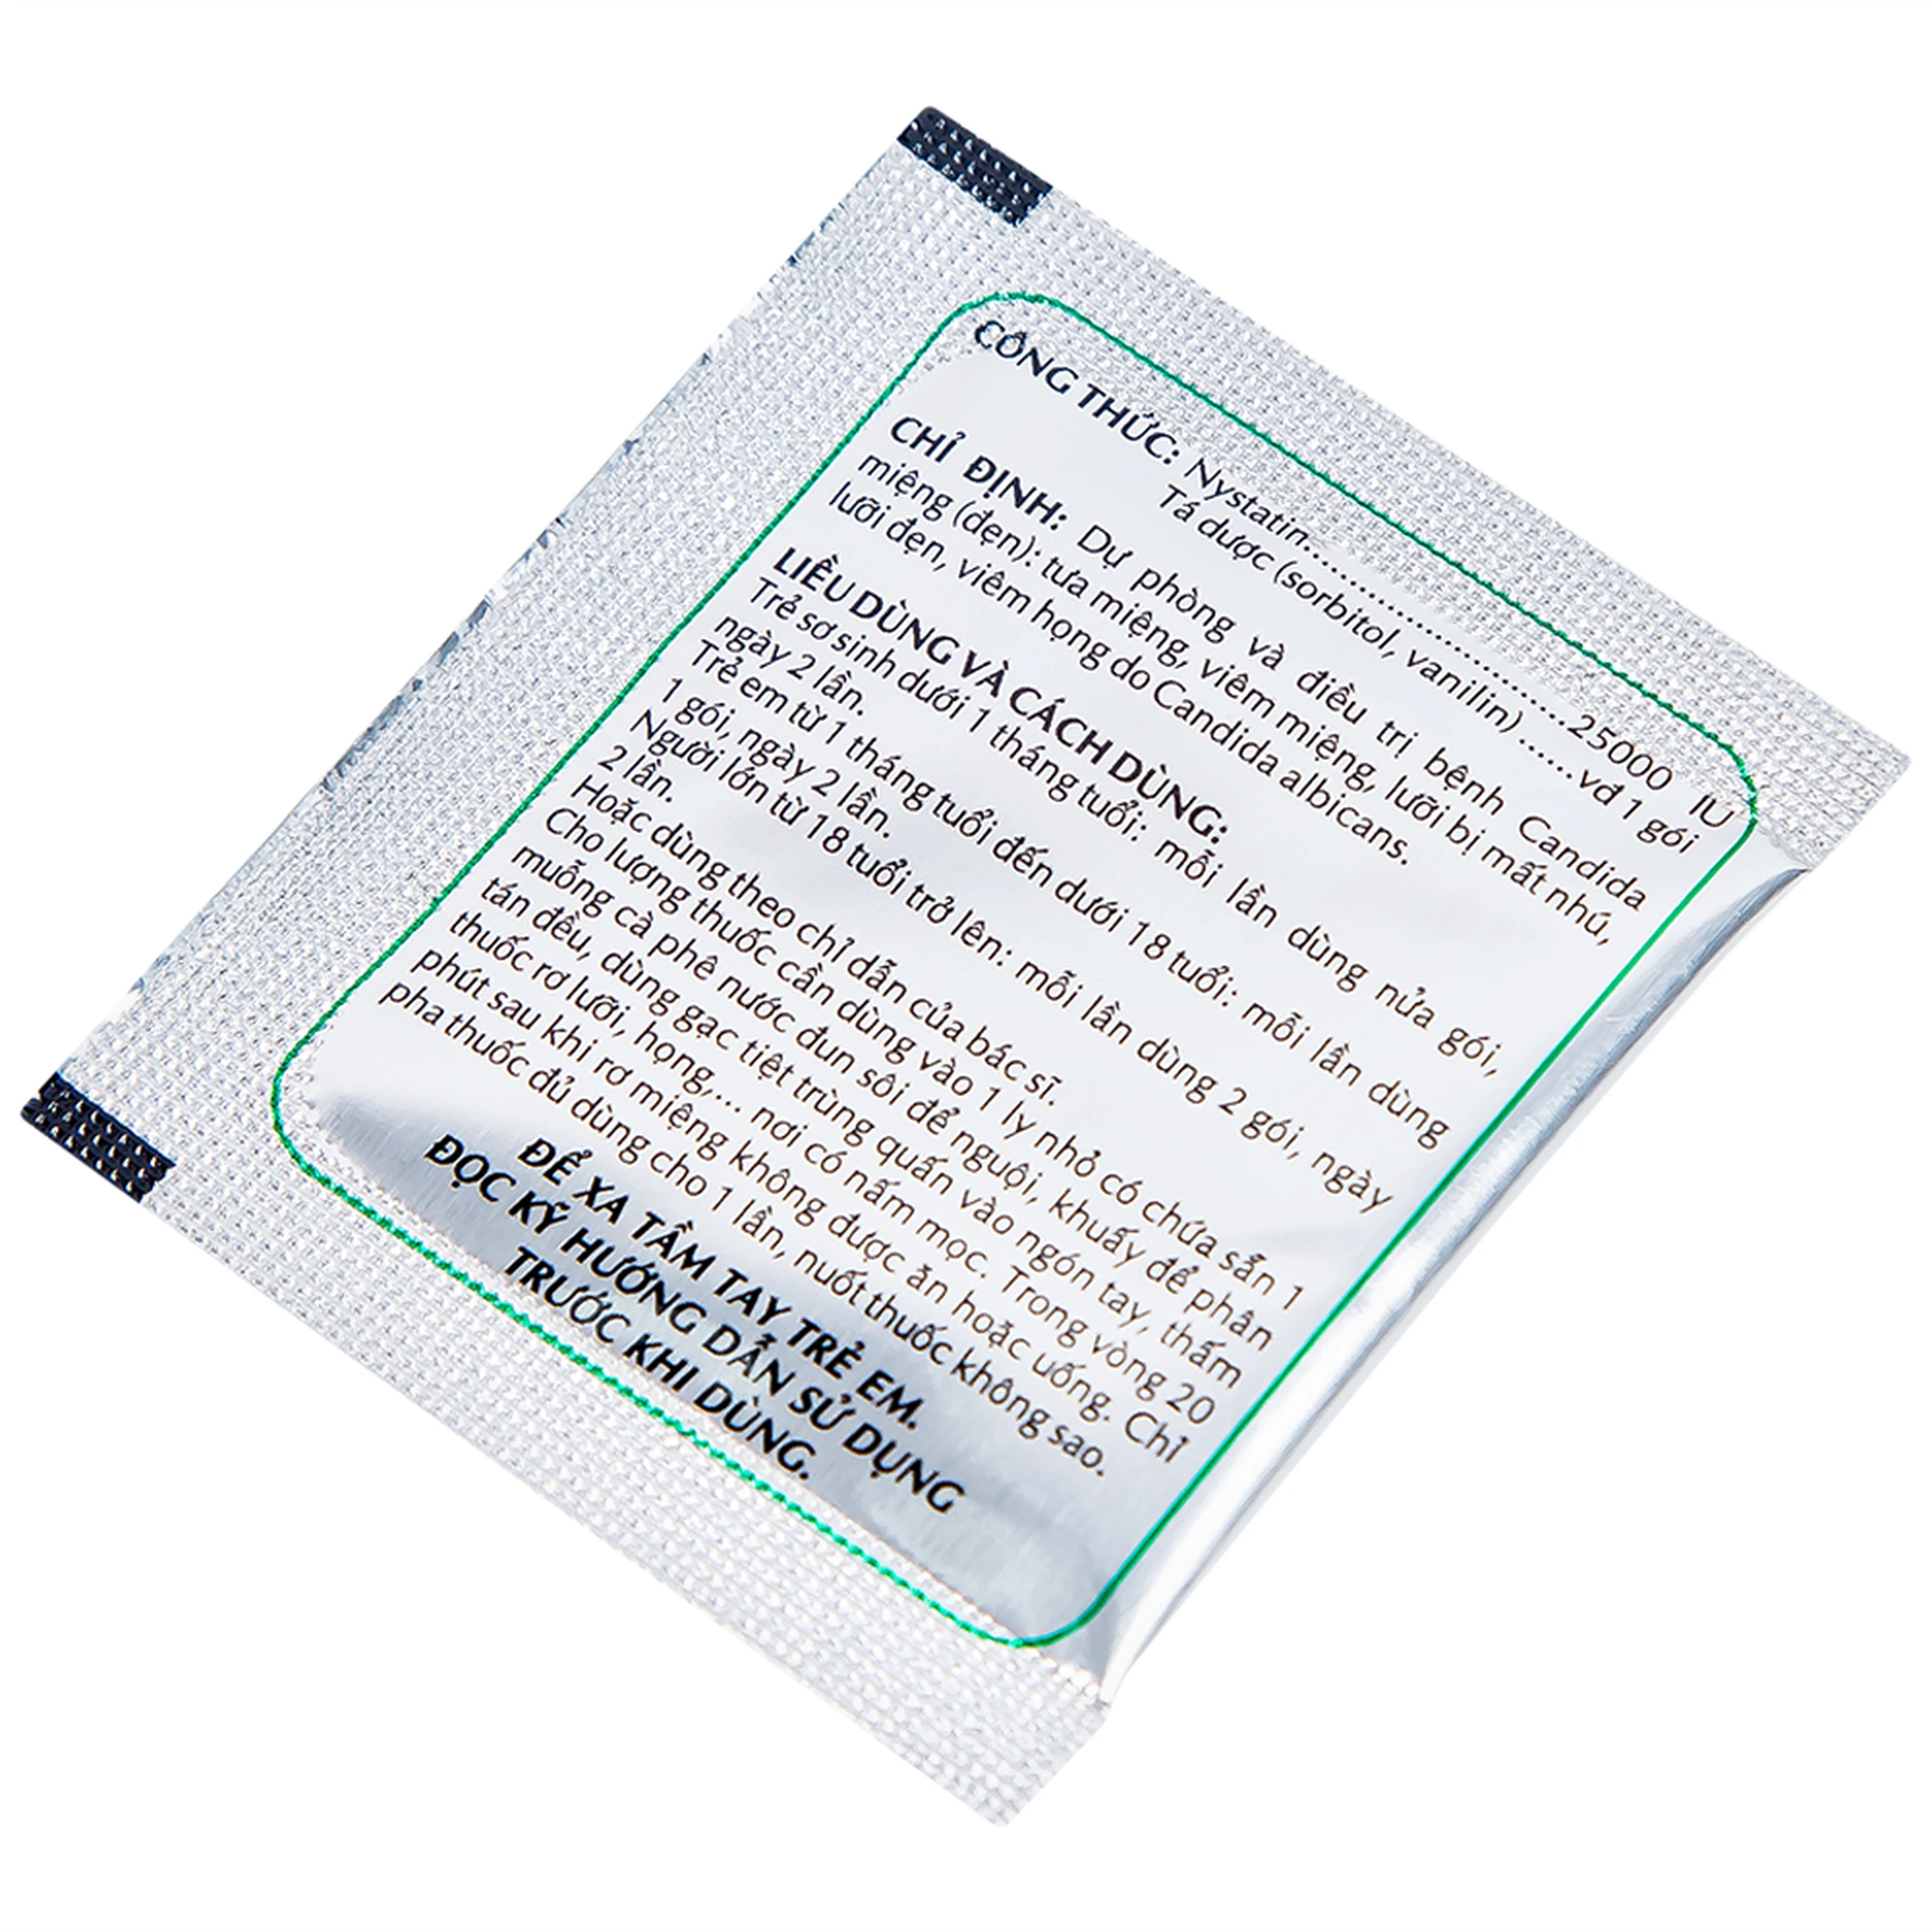 CÔNG THỨC: Nystatin..............................25000 IU
Tá dược (sorbitol, vanilin)......vđ 1 gói
CHỈ ĐỊNH: Dự phòng và điều trị bệnh Candida
miệng (đẹn): tưa miệng, viêm miệng, lưỡi bị mất nhú,
lưỡi đẹn, viêm họng do Candida albicans.
LIỀU DÙNG VÀ CÁCH DÙNG:
Trẻ sơ sinh dưới 1 tháng tuổi: mỗi lần dùng nửa gói,
ngày 2 lần.
Trẻ em từ 1 tháng tuổi đến dưới 18 tuổi: mỗi lần dùng
1 gói, ngày 2 lần.
Người lớn từ 18 tuổi trở lên: mỗi lần dùng 2 gói, ngày
2 lần.
Hoặc dùng theo chỉ dẫn của bác sĩ.
Cho lượng thuốc cần dùng vào 1 ly nhỏ có chứa sẵn 1
muỗng cà phê nước đun sôi để nguội, khuấy để phân
tán đều, dùng gạc tiệt trùng quấn vào ngón tay, thấm
thuốc rơ lưỡi, họng,... nơi có nấm mọc. Trong vòng 20
phút sau khi rơ miệng không được ăn hoặc uống. Chỉ
pha thuốc đủ dùng cho 1 lần, nuốt thuốc không sao.
ĐỂ XA TẦM TAY TRẺ EM.
ĐỌC KỸ HƯỚNG DẪN SỬ DỤNG
TRƯỚC KHI DÙNG.